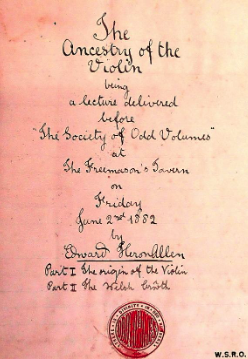 The
Ancestry of the
Violin
being
a lecture delivered
before
"The Society of Odd Volumes"
at
The Freemason's Tavern
on
Friday
June 2nd 1882
by
Edward Heron-Allen
Part I The origin of the Violin
Part II The Welsh Crwth
W.S.R.O.